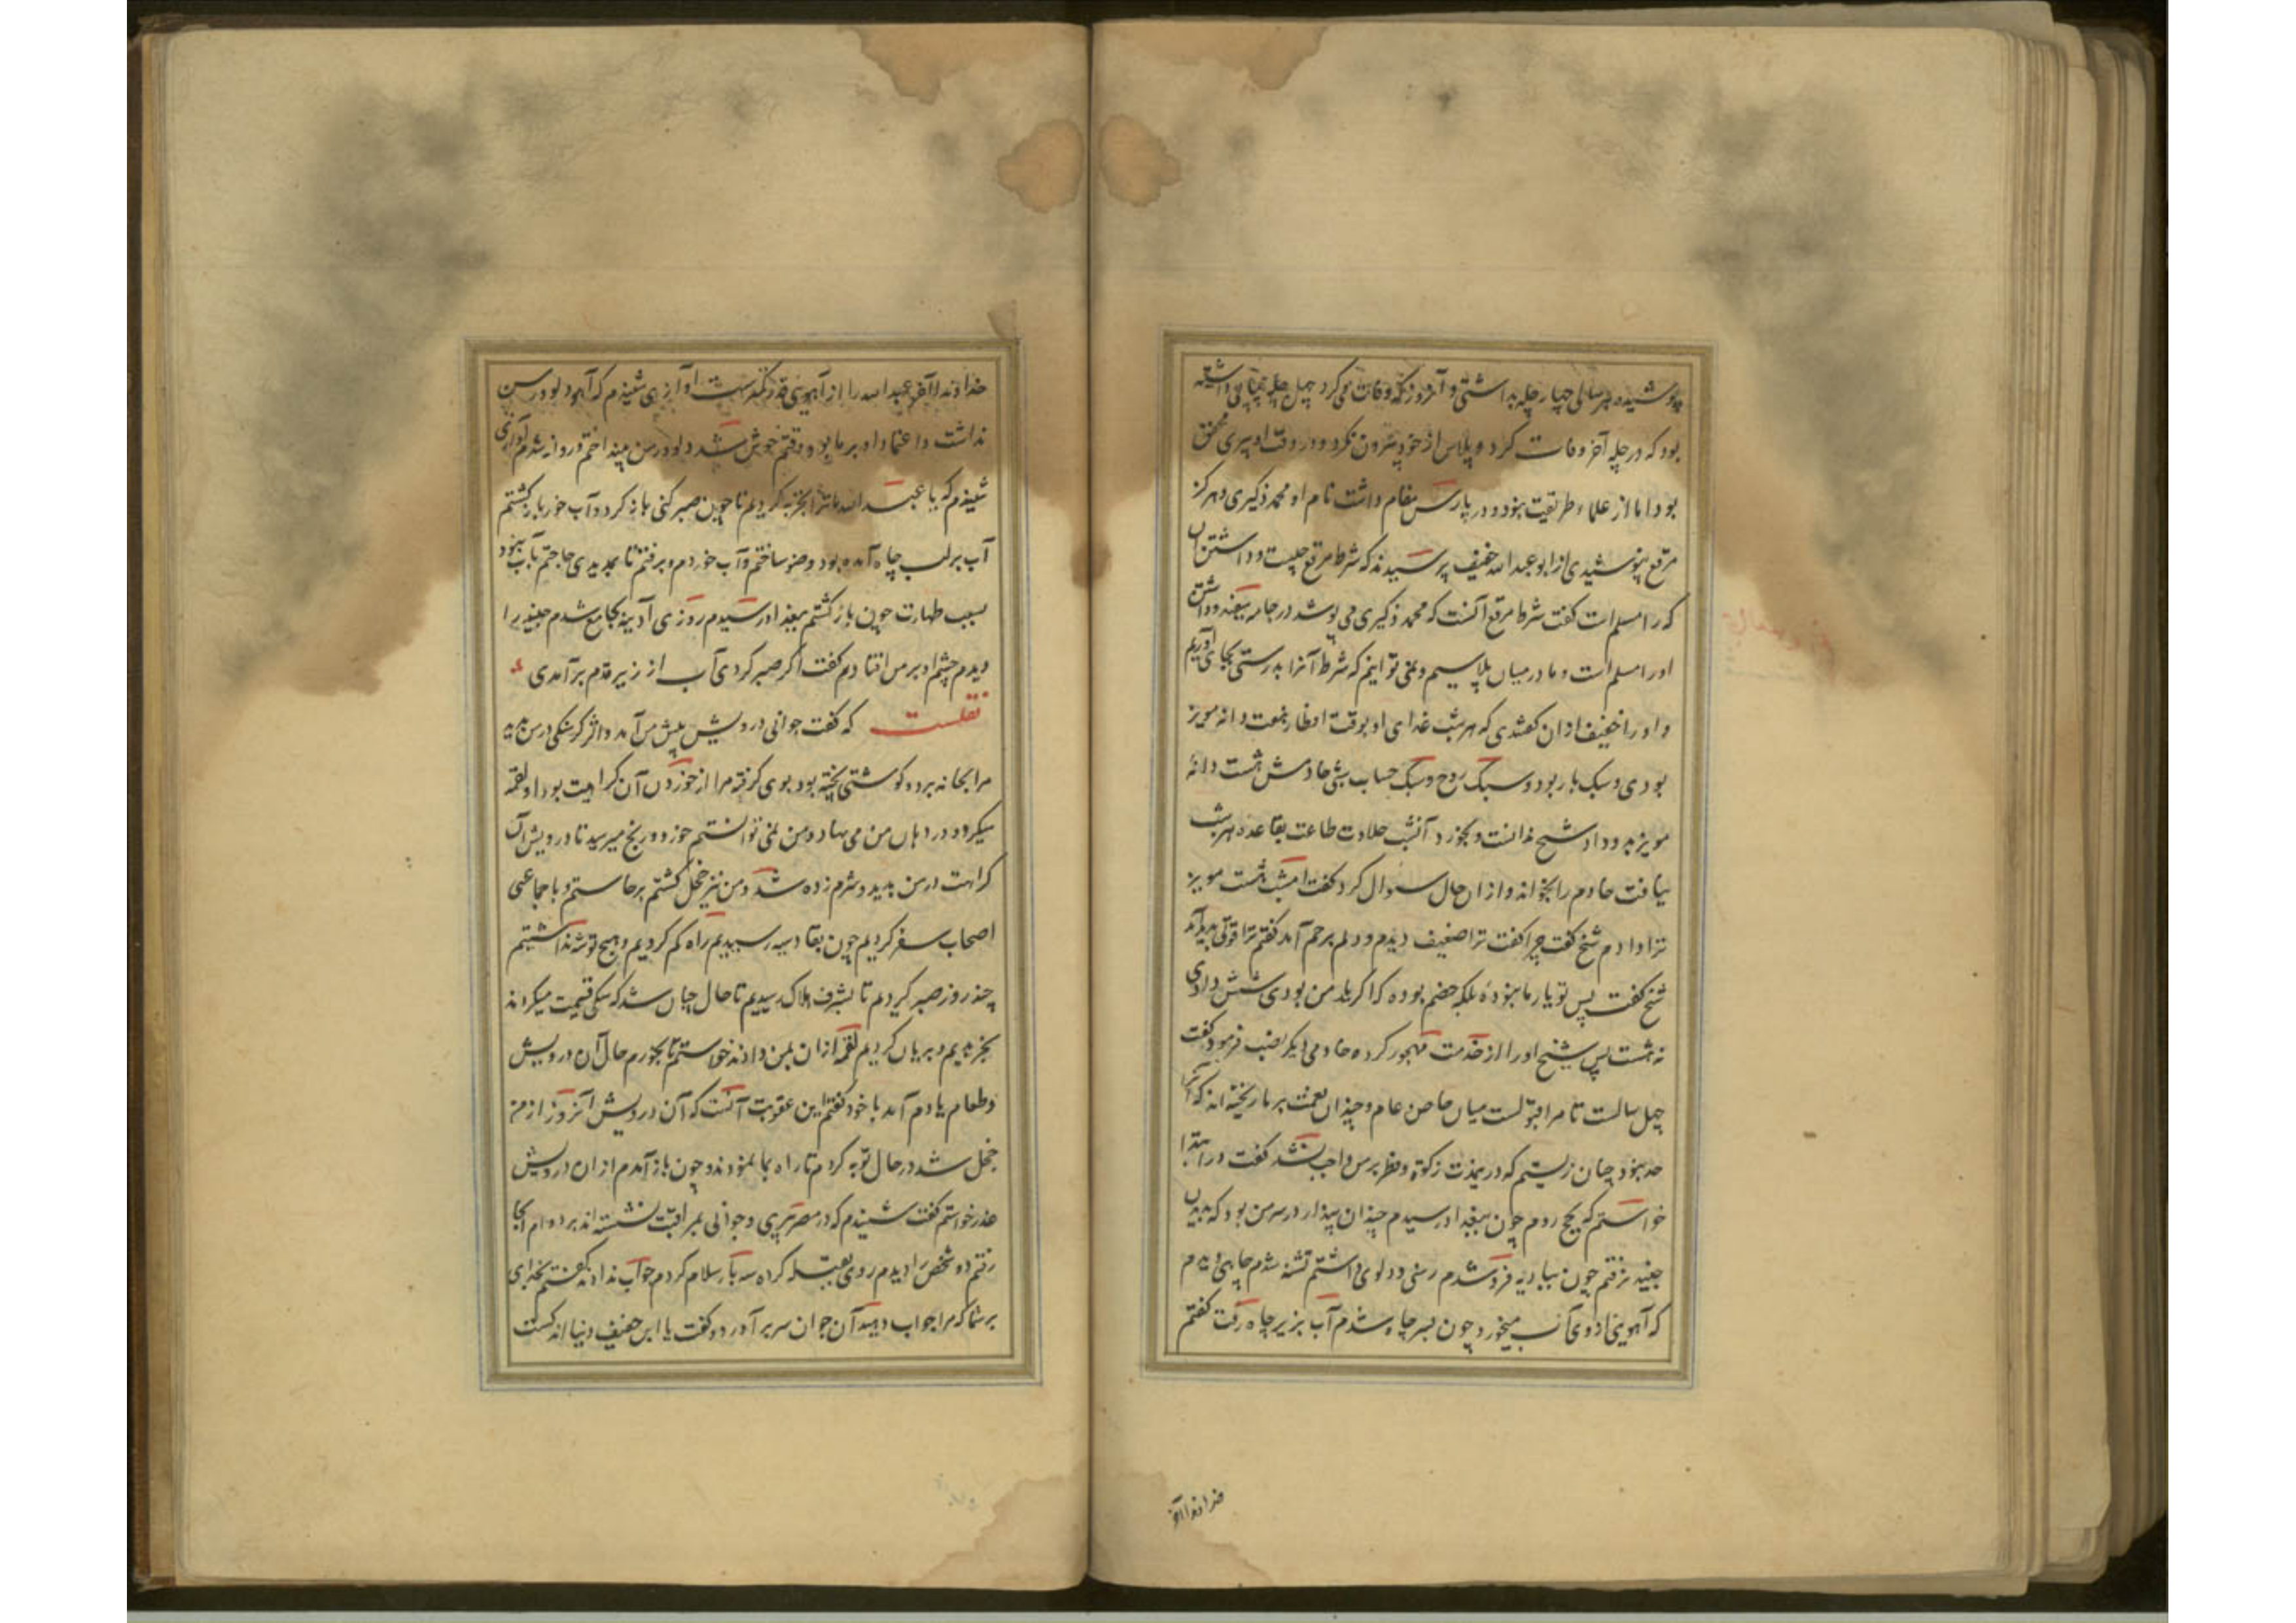 پوشیده هر سالی چهار چله بداشتی و آنروز که وفات می کرد چهل چله پیاپی داشته
بود که در چله آخر وفات کرد و پلاس از خود بیرون نکرد و در وقت او پیری محقق
بود اما از علماء طریقت نبود و در پارس مقام داشت نام او محمد ذکیری و هرگز
مرقع نپوشیدی از ابو عبد الله خفیف پرسیدند که شرط مرقع چیست و داشتن آن
کرا مسلم است گفت شرط مرقع آنست که محمد ذکیری می پوشد در جامه سفید و داشتن
او را مسلم است و ما در میان پلاسیم و نمی توانیم که شرط آنرا بدرستی بجای آوریم
و او را خفیف ازان گفتندی که هر شب غذای او بوقت افطار هفت دانه مویز
بودی و سبک بار بود و سبک روح و سبک حساب شبی خادمش هشت دانه
مویز بدو داد شیخ ندانست و بخورد آنشب حلاوت طاعت بقاعده هر شب
نیافت خادم را بخواند و ازان حال سوال کرد گفت امشب هشت مویز
ترا دادم شیخ گفت چرا گفت ترا ضعیف دیدم و دلم برحم آمد گفتم ترا قوتی پدید آید
شیخ گفت پس تو یار ما نبوده بلکه خصم بوده که اگر یار من بودی شش دادی
نه هشت پس شیخ او را از خدمت مهجور کرده خادمی دیگر نصب فرمود و گفت
چهل سالست تا مرا قبولست میان خاص و عام و چندان نعمت بر ما ریخته اند که آنرا
حد نبود چنان زیستم که درین مدت زکوة فطر بر من واجب نشد گفت در ابتدا
خواستم که بحج روم چون ببغداد رسیدم چندان پندار در سر من بود که بدیدن
جنید نرفتم چون ببادیه فرو شدم رسنی و دلوی داشتم تشنه شدم چاهی دیدم
که آهوئی از وی آب میخورد چون بسر چاه شدم آب بزیر چاه رفت گفتم
خداوندا آخ
خداوندا آخر عبد الله را از آهوئی قدر کمترست آوازی شنیدم که آهو دلو و رسن
نداشت و اعتماد او بر ما بود وقتم خوش شد دلو و رسن بینداختم و روانه شدم آوازی
شنیدم که یا عبد الله ما ترا تجربه کردیم تا چون صبر کنی باز گرد و آب خور باز گشتم
آب بر لب چاه آمده بود وضو ساختم و آب خوردم و برفتم تا بمدینه حاجتم بآب نبود
بسبب طهارت چون باز گشتم ببغداد رسیدم روزی آدینه بجامع شدم جنید را
دیدم چشم او بر من افتاد گفت اگر صبر کردی آب از زیر قدم برآمدی
نقلست که گفت جوانی درویش پیش من آمد و اثر گرسنگی در من بدید
مرا بخانه برد و گوشتی پخته بود بوی گرفته مرا از خوردن آن کراهیت بود او لقمه
میکرد و در دهان من می نهاد و من نمی توانستم خورد و رنج میرسید تا درویش آن
کراهت در من بدید و شرم زده شد و من نیز خجل گشتم برخاستم و با جماعتی
اصحاب سفر کردیم چون بقادسیه رسیدیم راه گم کردیم و هیچ توشه نداشتیم
چند روز صبر کردیم تا بشرف هلاک رسیدیم تا حال چنان شد که سگی قیمت میکردند
بخریدیم و بریان کردیم لقمه ازان بمن دادند خواستم تا بخورم حال آن درویش
و طعام یادم آمد با خود گفتم این عقوبت آنست که آن درویش آنروز از من
خجل شد در حال توبه کردم تا راه بما نمودند و چون باز آمدم ازان درویش
عذر خواستم گفت شنیدم که در مصر پیری و جوانی بمراقبت نشسته اند بر دوام آنجا
رفتم دو شخص را دیدم روی بقبله کرده سه بار سلام کردم جواب ندادند گفتم بخدای
بر شما که مرا جواب دهید آن جوان سر برآورد و گفت یا ابن خفیف دنیا اندکست